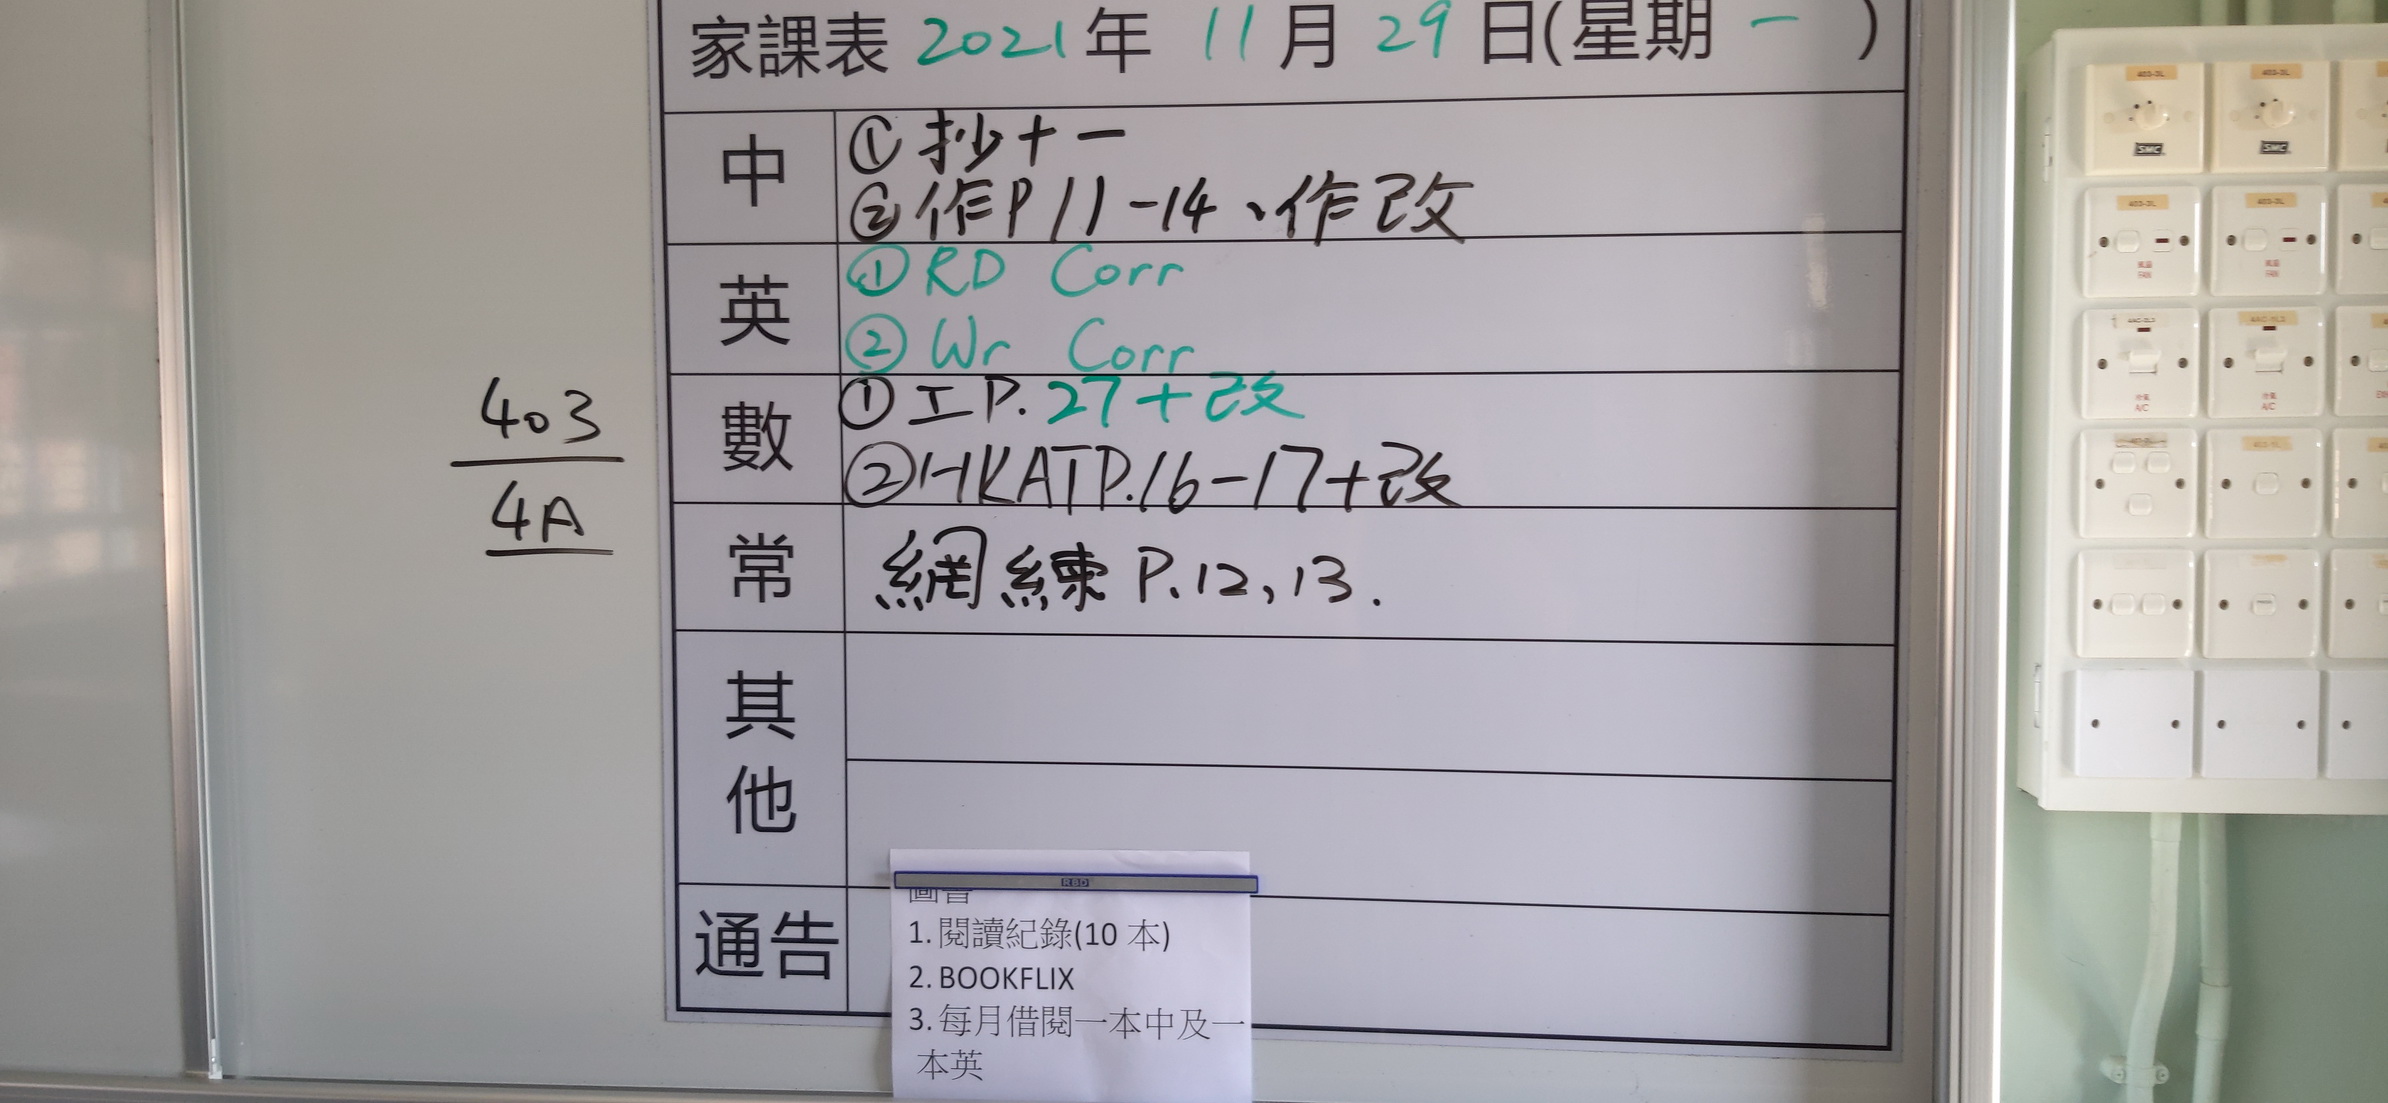 家課表 2021年 11月 29日(星期 一 )
中
① 抄十一
② 作P 11-14、作改
英
① RD Corr
② Wr Corr
數
① 工P. 27+改
② HKATP.16-17+改
常
網練 P.12,13.
其他
通告
403
4A
RBD
圖書
1. 閱讀紀錄(10 本)
2. BOOKFLIX
3. 每月借閱一本中及一
本英
403-3L
403-3L
SMC
SMC
403-3L
403-3L
風扇
FAN
風扇
FAN
冷氣
A/C
冷氣
A/C